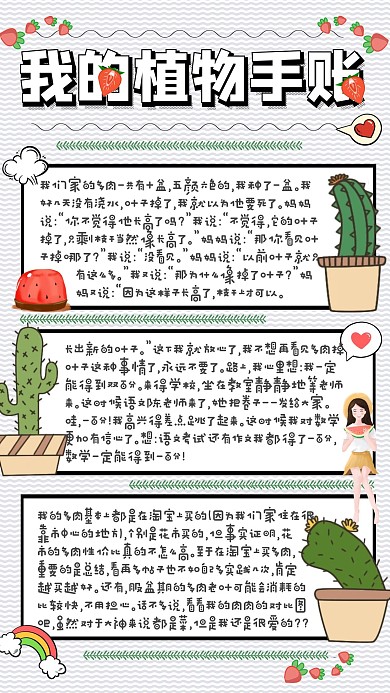 我的植物手账
我们家的多肉一共有十盆,五颜六色的,我种了一盆。我
好几天没有浇水,叶子掉了,我就以为他要死了。妈妈
说:“你不觉得他长高了吗?”我说:“不觉得,它的叶子
掉了,只剩枝干当然像长高了。”妈妈说:“那你看见叶
子掉哪了?”我说:“没看见。”妈妈说:“以前叶子就只
有这么多。”我又说:“那为什么像掉了叶子?”妈
妈又说:“因为这样子长高了,枝干上才可以。
长出新的叶子。”这下我就放心了,我不想再看见多肉掉
叶子这种事情了,永远不要了。路上,我心里想:我一定
能得到双百分。来得学校,坐在教室静静地等老师
来。这时候语文阮老师来了,她把卷子一一发给大家。
哇,一百分!我高兴得差点跳了起来。这时候我对数学
更加有信心了。想:语文考试还有作文我都得了一百分,
数学一定能得到一百分!
我的多肉基本上都是在淘宝上买的(因为我们家住在很
靠市中心的地方),个别是花市买的,但事实证明,花
市的多肉性价比真的不怎么高。至于在淘宝上买多肉,
重要的是总结,看再多帖子也不如自己多实践几次,肯定
越买越好。还有,服盆期的多肉老叶可能会消耗的
比较快,不用担心。话不多说,看看我的肉肉的对比图
吧,虽然对于大神来说都是菜,但是我还是很爱的??